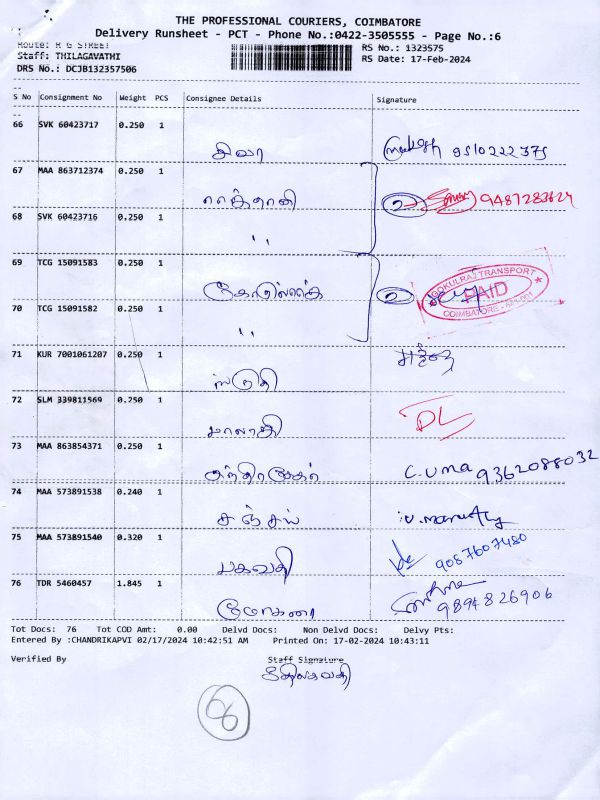 THE PROFESSIONAL COURIERS, COIMBATORE
Delivery Runsheet - PCT - Phone No.:0422-3505555 - Page No.:6
Route: R G STREET
RS No.: 1323575
Staff: THILAGAVATHI
RS Date: 17-Feb-2024
DRS No.: DCJB132357506
S No Consignment No Weight PCS Consignee Details Signature
66 SVK 60423717 0.250 1
சிவா 9510222375
67 MAA 863712374 0.250 1
2 9487283624
68 SVK 60423716 0.250 1
"
69 TCG 15091583 0.250 1
2 GOKULRAJ TRANSPORT PAID COIMBATORE
70 TCG 15091582 0.250 1
"
71 KUR 7001061207 0.250 1
ஸ்ருதி
72 SLM 339811569 0.250 1
மாலதி DL
73 MAA 863854371 0.250 1
சந்திரசேகர் C. uma 9362088032
74 MAA 573891538 0.240 1
சஞ்சய்
75 MAA 573891540 0.320 1
பகவதி 9087607480
76 TDR 5460457 1.845 1
9894826906
Tot Docs: 76 Tot COD Amt: 0.00 Delvd Docs: Non Delvd Docs: Delvy Pts:
Entered By :CHANDRIKAPVI 02/17/2024 10:42:51 AM Printed On: 17-02-2024 10:43:11
Verified By Staff Signature
திலகவதி
66